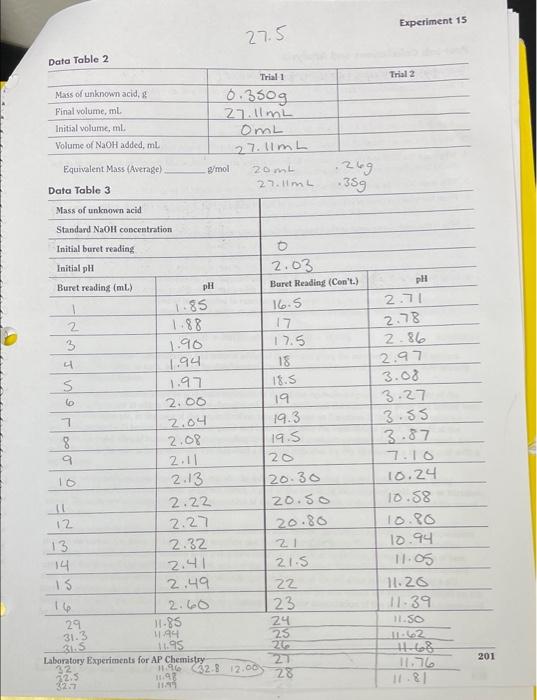 Experiment 15
27.5
Data Table 2
Trial 1 Trial 2
Mass of unknown acid, g 0.350g
Final volume, mL 27.11mL
Initial volume, mL 0mL
Volume of NaOH added, mL 27.11mL
Equivalent Mass (Average) g/mol 20mL .26g
27.11mL .35g
Data Table 3
Mass of unknown acid
Standard NaOH concentration
Initial buret reading 0
Initial pH 2.03
Buret reading (mL) pH Buret Reading (Con't.) pH
1 1.85 16.5 2.71
2 1.88 17 2.78
3 1.90 17.5 2.86
4 1.94 18 2.97
5 1.97 18.5 3.08
6 2.00 19 3.27
7 2.04 19.3 3.55
8 2.08 19.5 3.87
9 2.11 20 7.10
10 2.13 20.30 10.24
11 2.22 20.50 10.58
12 2.27 20.80 10.80
13 2.32 21 10.94
14 2.41 21.5 11.05
15 2.49 22 11.26
16 2.60 23 11.39
29 11.85 24 11.50
31.3 11.94 25 11.62
31.5 11.95 26 11.68
Laboratory Experiments for AP Chemistry 27 11.76 201
32 11.96 32.8 12.00
32.5 11.98 28 11.81
32.7 11.99